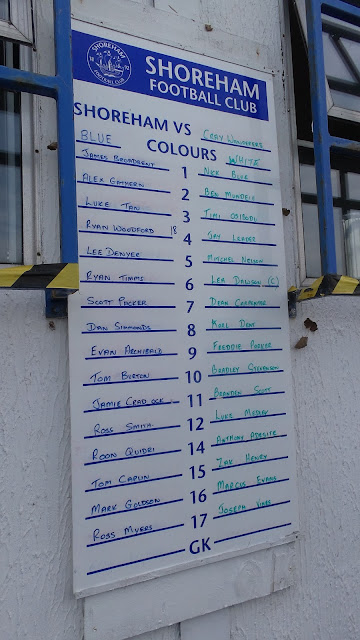 SHOREHAM
FOOTBALL CLUB
SHOREHAM VS CRAY WANDERERS
BLUE COLOURS WHITE
JAMES BROADBENT 1 NICK BLUE
ALEX GATHERN 2 BEN MUNDELE
LUKE TAN 3 TIMI ODIBODU
RYAN WOODFORD 18 4 JAY LEADER
LEE DENYER 5 MITCHEL NELSON
RYAN TIMMS 6 LEA DAWSON (C)
SCOTT PACKER 7 DEAN CARPENTER
DAN SIMMONDS 8 KARL DENT
EVAN ARCHIBALD 9 FREDDIE PARKER
TOM BURTON 10 BRADLEY STEVENSON
JAMIE CRADOCK 11 BRANDON SCOTT
ROSS SMITH 12 LUKE MEDLEY
ROON QUIDRI 14 ANTHONY
TOM CAPUN 15 ZAK HENRY
MARK GOLDSON 16 MARCUS EVANS
ROSS MYERS 17 JOSEPH VINES
GK